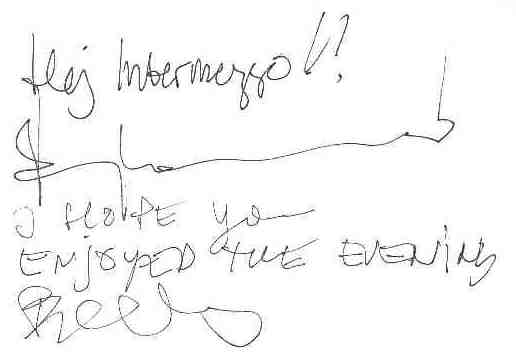 Hej Intermezzo!!
I HOPE you
ENJOYED THE EVENING